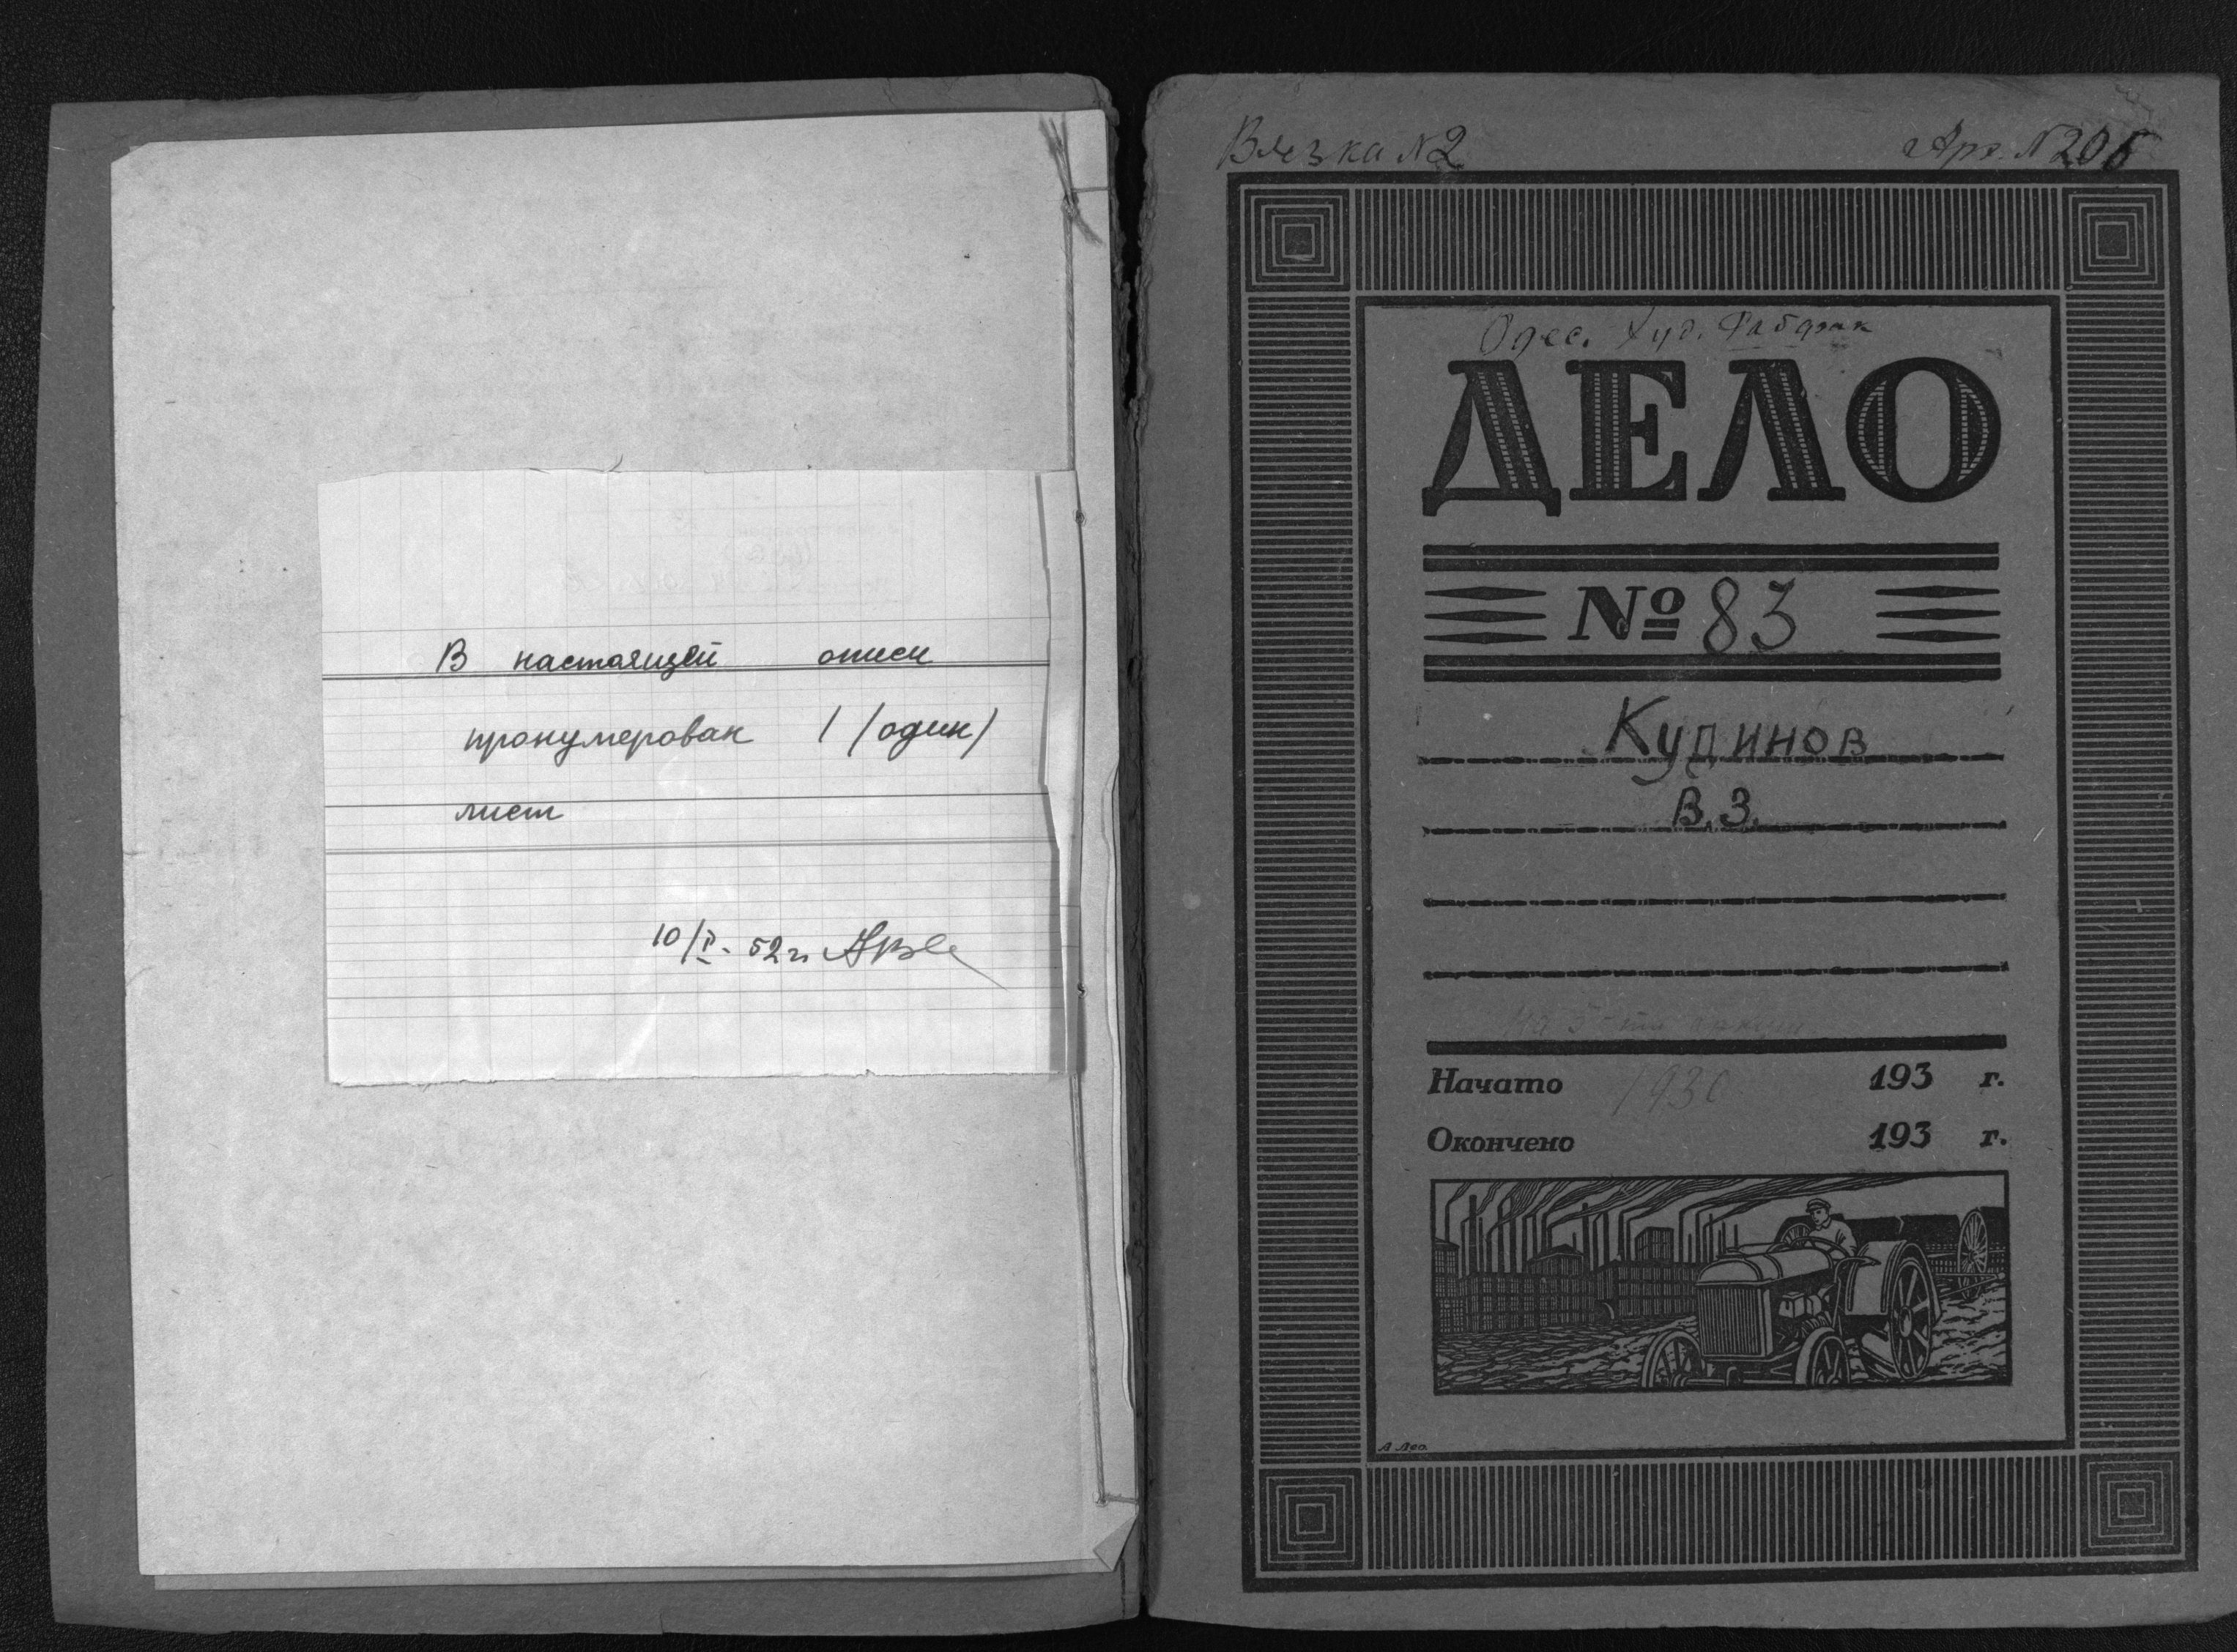 В настоящей описи
пронумерован 1 (один)
лист
10/V - 52 г.
Вязка №2
Арх. №206
Одес. Худ. Рабфак
ДЕЛО
№ 83
Кудинов
В. З.
На 5-ти
Начато 1930 193 г.
Окончено 193 г.